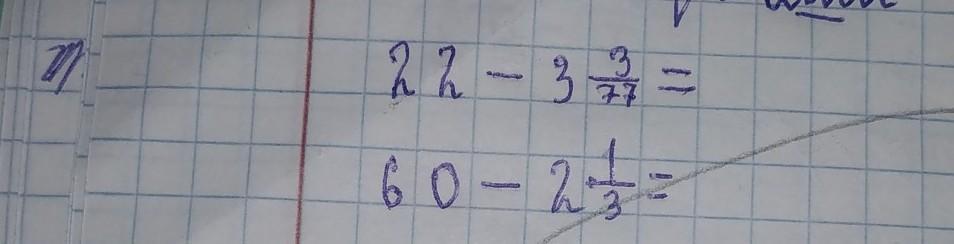 22 - 3 3/77 =
60 - 2 1/3 =